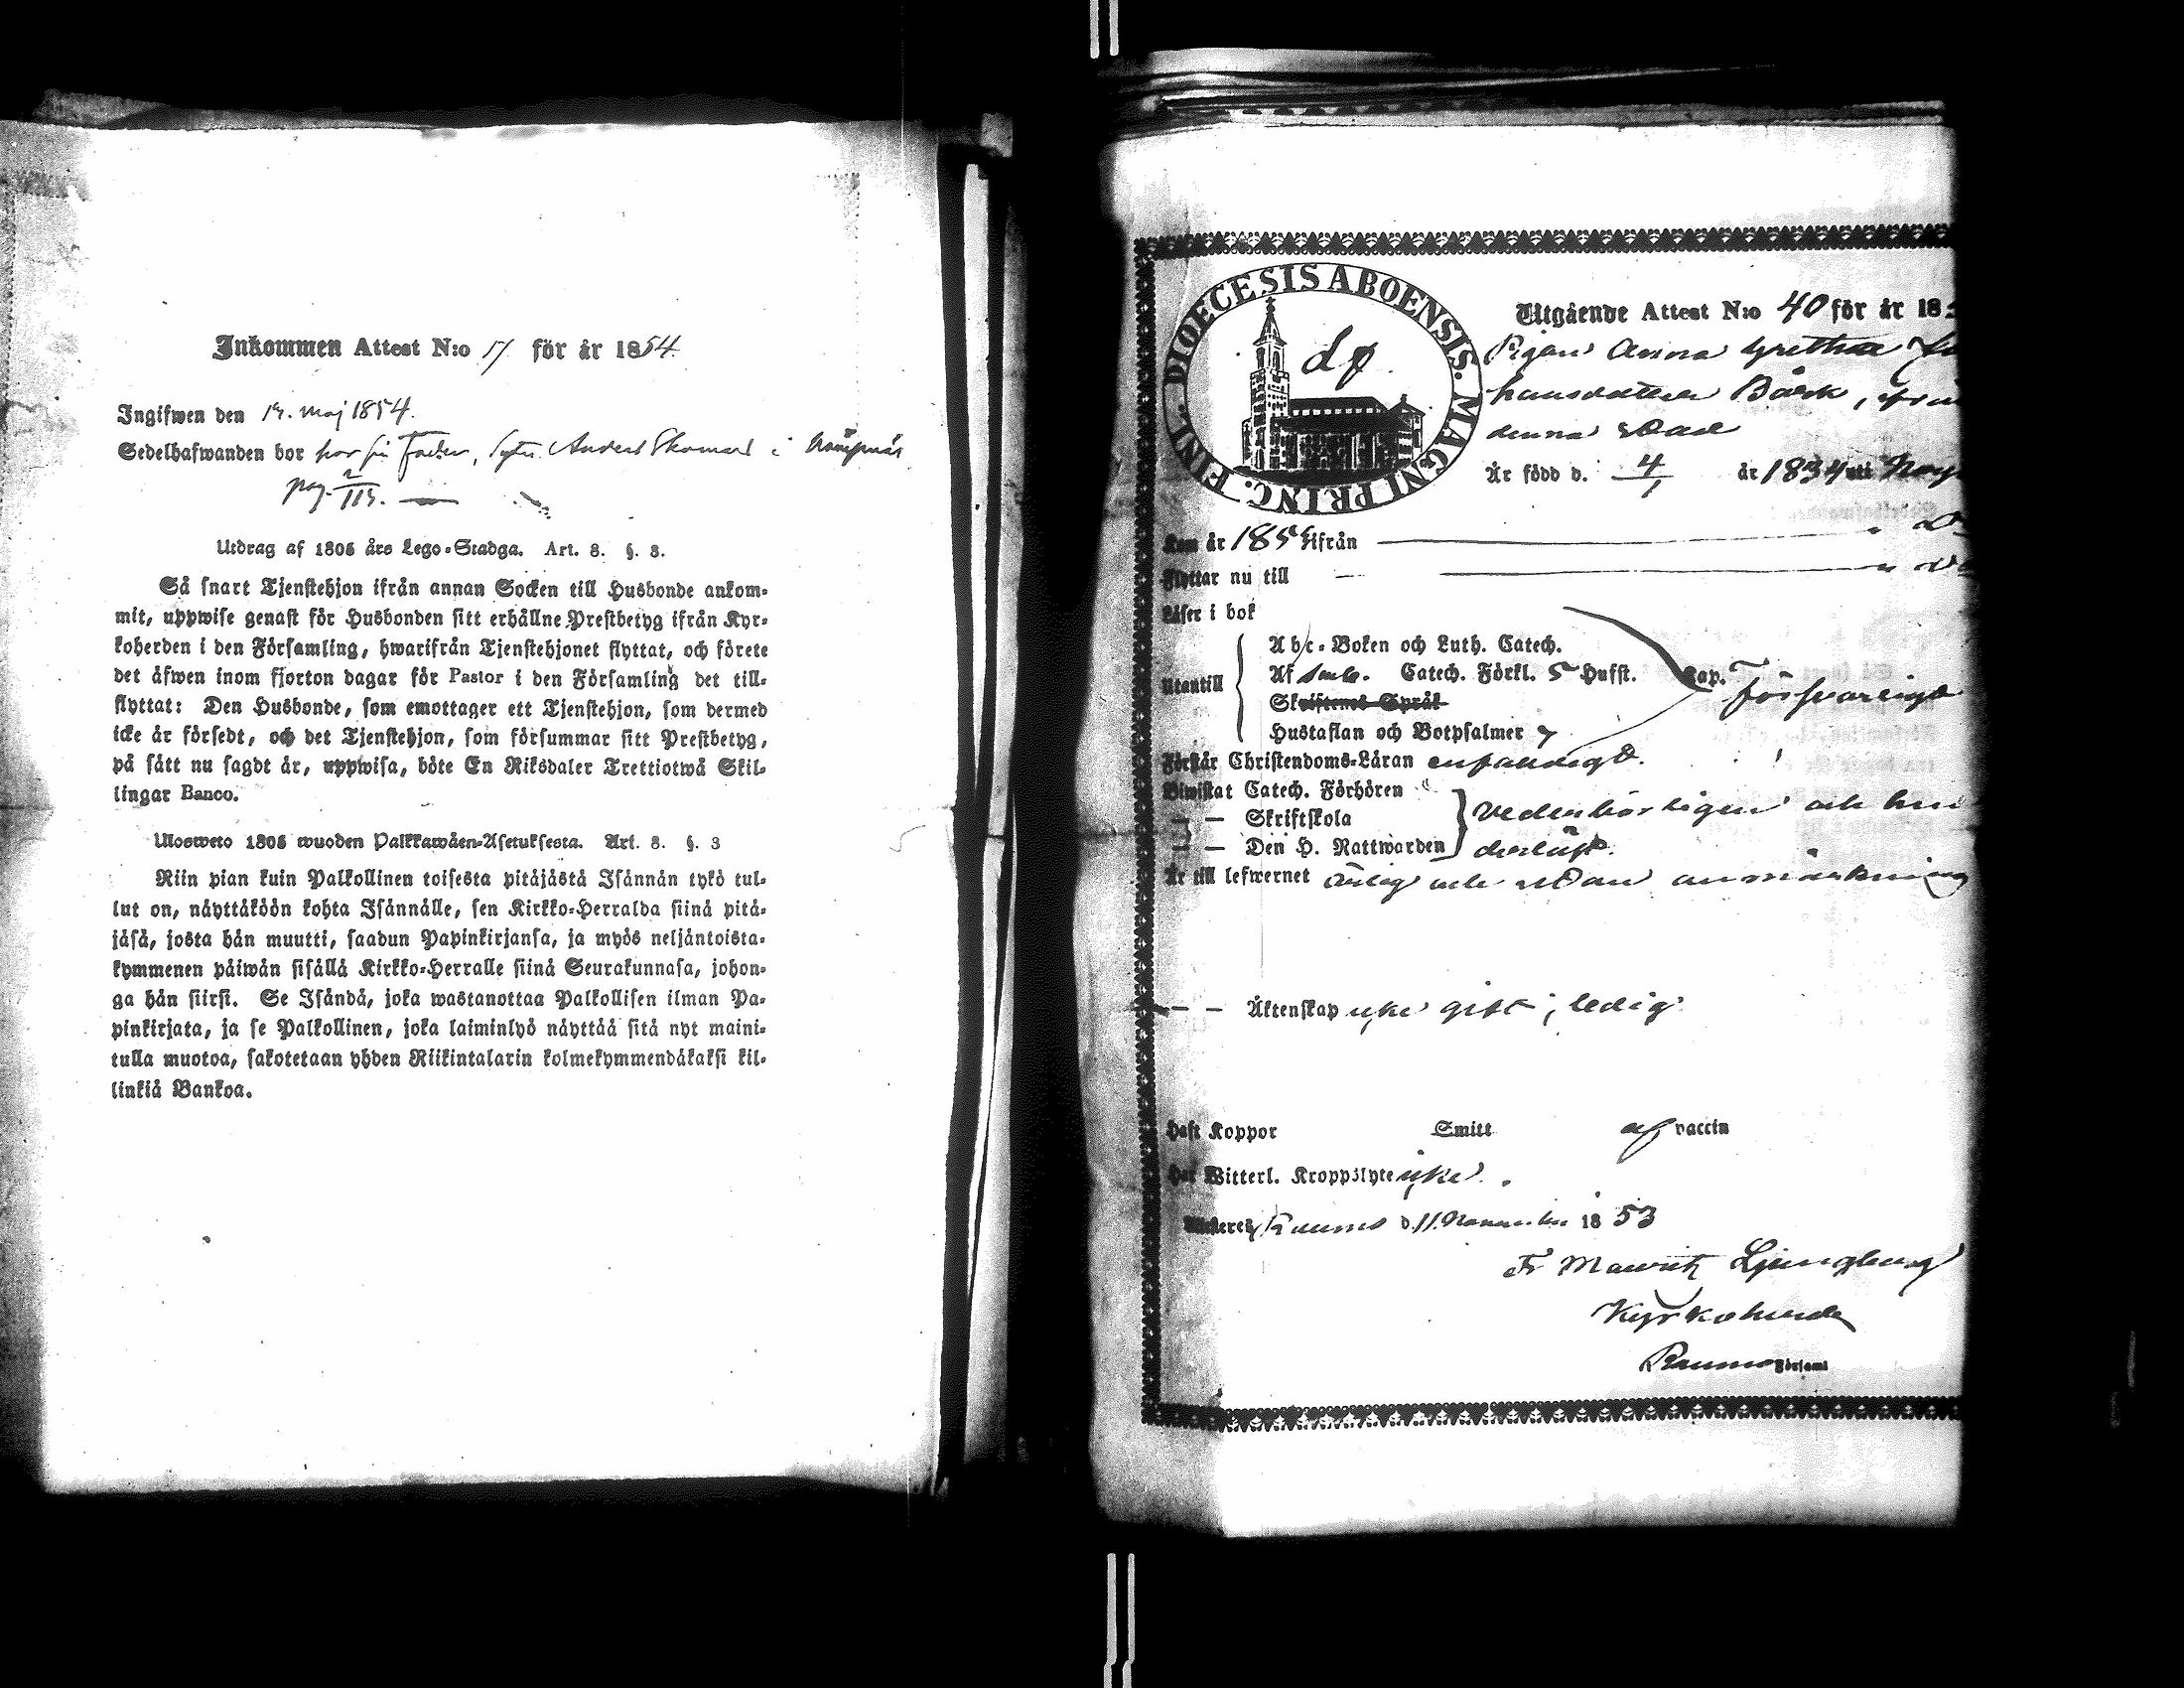 Inkommen Attest N:o 17 för år 1854
Ingifwen den 14. Maj 1854.
Sedelhafwanden bor hos sin Fader, Anders i
pag. 2/113.
Utdrag af 1805 års Lego-Stadga. Art. 8. §. 3.
Så snart Tjenstehjon ifrån annan Socken till Husbonde ankom-
mit, uppwise genast för Husbonden sitt erhållne Prestbetyg ifrån Kyr-
koherden i den Församling, hwarifrån Tjenstehjonet flyttat, och förete
det äfwen inom fjorton dagar för Pastor i den Församling det till-
flyttat: Den Husbonde, som emottager ett Tjenstehjon, som dermed
icke är försedt, och det Tjenstehjon, som försummar sitt Prestbetyg,
på sätt nu sagdt är, uppwisa, böte En Riksdaler Trettiotwå Skil-
lingar Banco.
Ulosweto 1805 wuoden Palkkawäen-Asetuksesta. Art. 8. §. 3
Niin pian kuin Palkollinen toisesta pitäjästä Isännän tykö tul-
lut on, näyttäköön kohta Isännälle, sen Kirkko-Herralda siinä pitä-
jäsä, josta hän muutti, saadun Papinkirjansa, ja myös neljäntoista-
kymmenen päiwän sisällä Kirkko-Herralle siinä Seurakunnasa, johon-
ga hän siirsi. Se Isändä, joka wastanottaa Palkollisen ilman Pa-
pinkirjata, ja se Palkollinen, joka laiminlyö näyttää sitä nyt maini-
tulla muotoa, sakotetaan yhden Riikintalarin kolmekymmendäkaksi kil-
linkiä Bankoa.
DIOECESIS ABOENSIS. MAGNI PRINC. FINL.
Utgående Attest N:o 40 för år 18
Pigan Anna Grettha
hansdotter Bäck,
denna Stad
Är född d. 4/1 år 1834 uti
Kom år ifrån
Flyttar nu till
Läser i bok
Utantill
Abc-Boken och Luth. Catech.
Af Catech. Förkl. 5 Hufst. Cap. försvarligt
Skriftenes Språk
Hustaflan och Botpsalmer 7
Förstår Christendoms-Läran enfaldigt.
Biwistat Catech. Förhören
— — Skriftskola vederbörligen och
— — Den H. Nattwarden
Är till lefwernet ärlig och utan anmärkning
— — Äktenskap icke gift; ledig
Haft Koppor Smitt af vaccin
Har Witterl. Kroppslyte icke.
Raumo d. 11. November 1853
Fr Mauritz Ljungberg
Kyrkoherde
Raumo Församl